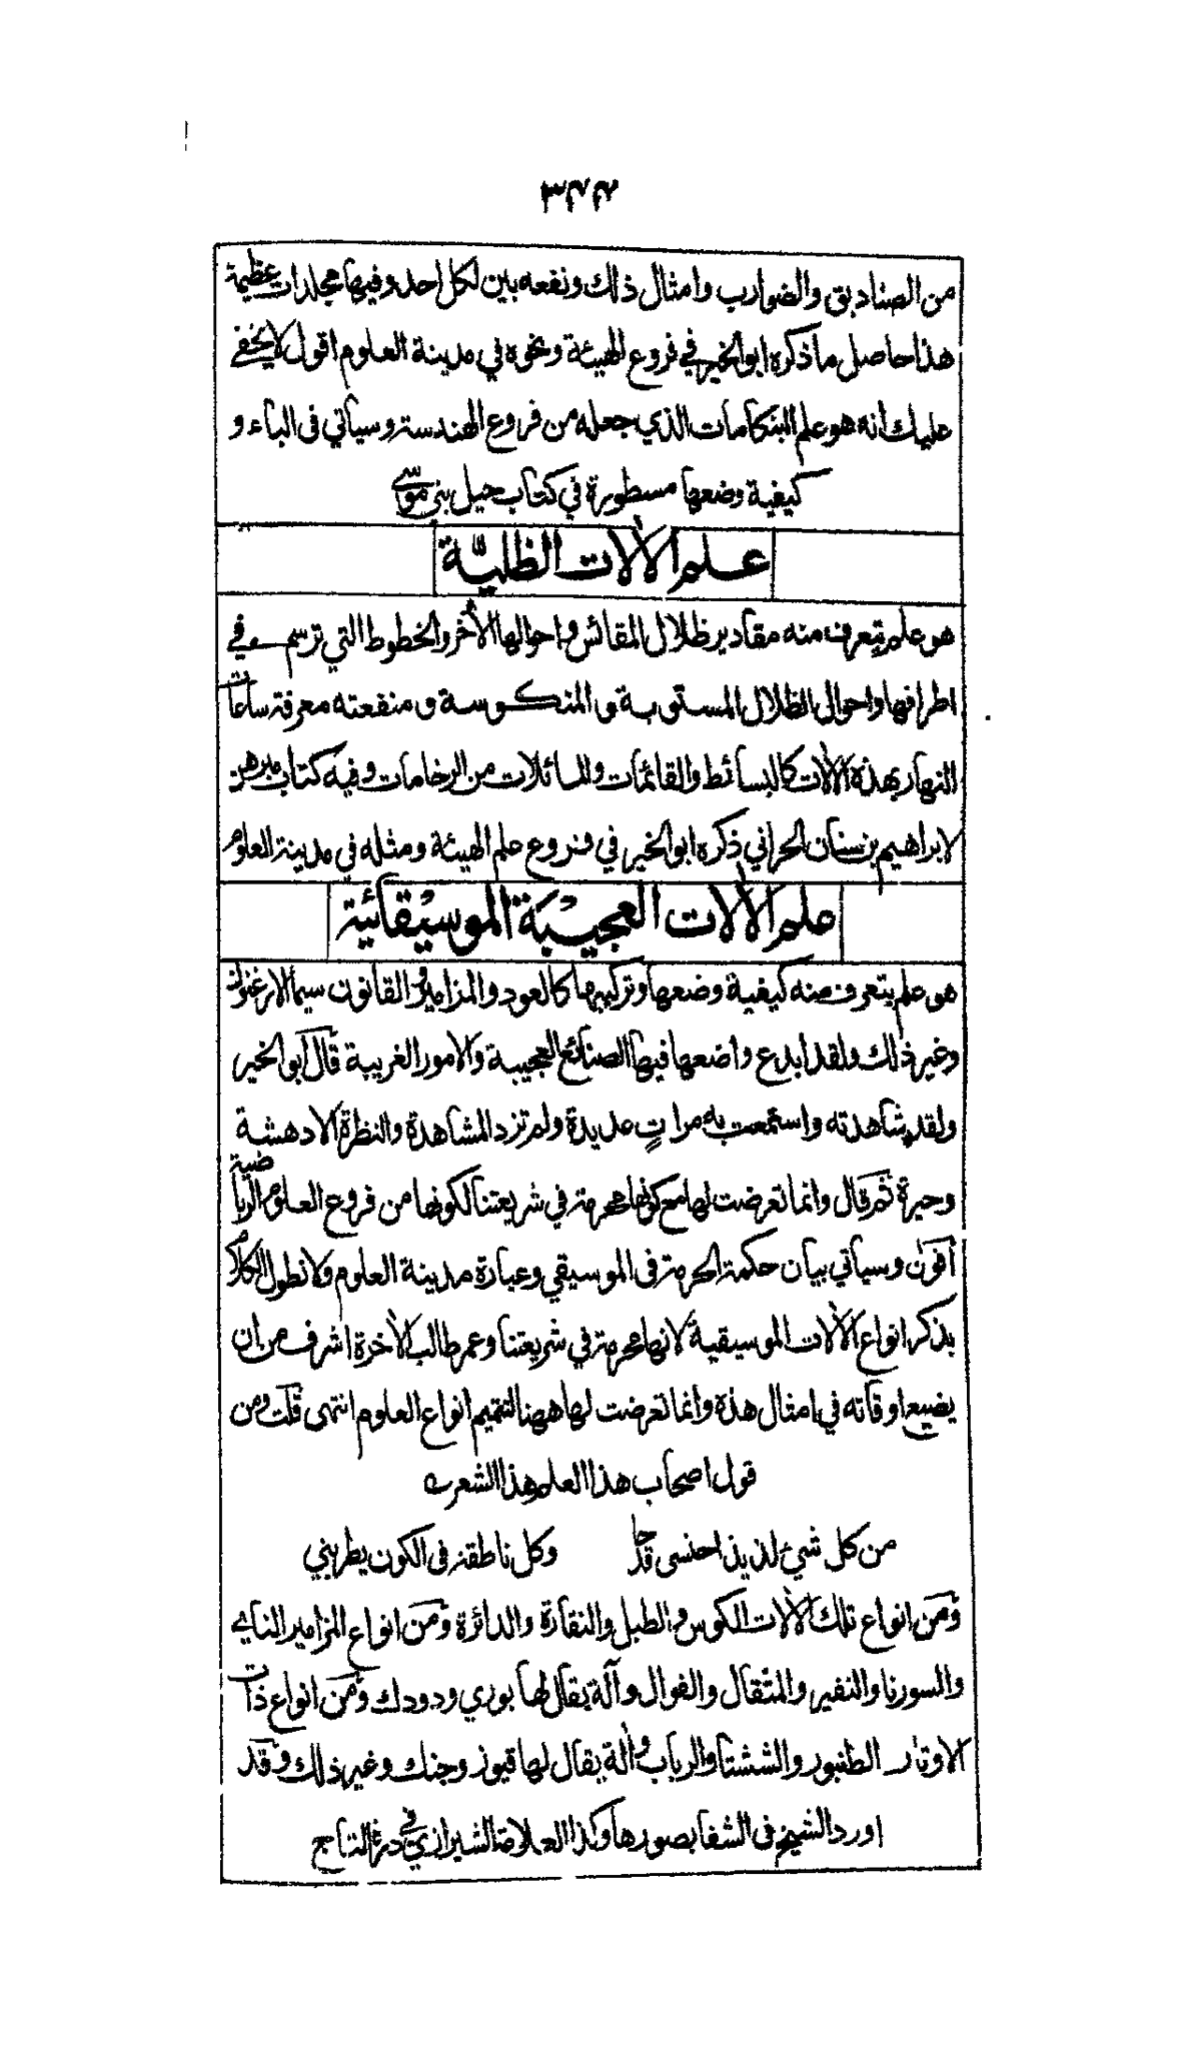 ٣٢٢
من الصناديق والضوارب وامثال ذلك ونفعه بين لكل احد وفيها مجلدات عظيمة
هذا حاصل ما ذكره ابو الخير في فروع الهيئة ونحوه في مدينة العلوم اقول لا يخفى
عليك انه هو علم البنكامات الذي جعله من فروع الهندسة وسياتي في الباء و
كيفية وضعها مسطورة في كتاب حيل بني موسى
علم الآلات الظلية
هو علم يتعرف منه مقادير ظلال المقائس واحوالها الأخر والخطوط التي ترسم في
اطرافها واحوالى الظلال المستوية والمنكوسة ومنفعته معرفة ساعات
النهار بهذه الآلات كالبسائط والقائمات والمسائلات من الرخامات وفيه كتاب مبرهن
لابراهيم بن سنان الحراني ذكره ابو الخير في فروع علم الهيئة ومثله في مدينة العلوم
علم الآلات العجيبة الموسيقائية
هو علم يتعرف منه كيفية وضعها وتركيبها كالعود والمزامير والقانون سيما الارغنون
وغير ذلك ولقد ابدع واضعها فيها الصنائع العجيبة والامور الغريبة قال ابو الخير
ولقد شاهدته واستمعت به مراتٍ عديدة ولم تزد المشاهدة والنظرة الا دهشة
وحيرة ثم قال وانما تعرضت لها مع كونها محرمة في شريعتنا لكونها من فروع العلوم الرياضية
أقول وسياتي بيان حكمة الحرمة في الموسيقي وعبارة مدينة العلوم ولا نطول الكلام
بذكر انواع الآلات الموسيقية لانها محرمة في شريعتنا وعمر طالب الآخرة اشرف من ان
يضيع اوقاته في امثال هذه وانما تعرضت لها ههنا لتتميم انواع العلوم انتهى قلت ومن
قول اصحاب هذا العلم هذا الشعر
من كل شيء لذيذ احتسى قدحا وكل ناطقة في الكون يطربني
ومن انواع تلك الآلات الكوس والطبل والنقارة والدائرة ومن انواع المزامير الناي
والسورنا والنفير والمثقال والفوال وآلة يقال لها بوري ودودك ومن انواع ذات
الاوتار الطنبور والششتا والرباب وآلة يقال لها قيوز وجنك وغير ذلك وقد
اورد الشيخ في الشفا بصورها وكذا العلامة الشيرازي في درة التاج